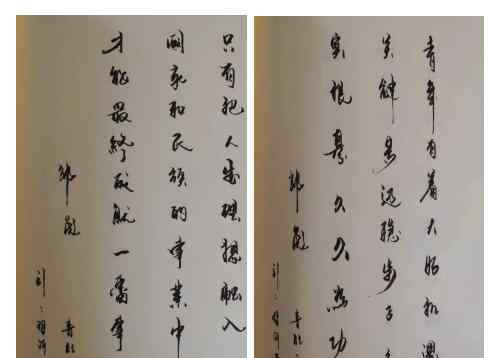 只有把人生理想融入
国家和民族的事业中
才能最终成就一番事
青年有着大好机遇
关键是迈稳步子
实根基久久为功